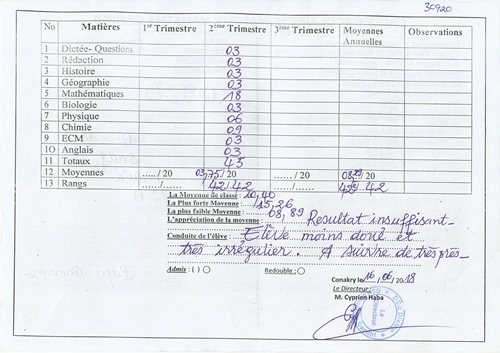 30920
No Matières 1er Trimestre 2ème Trimestre 3ème Trimestre Moyennes Annuelles Observations
1 Dictée- Questions 03
2 Rédaction 03
3 Histoire 03
4 Géographie 03
5 Mathématiques 18
6 Biologie 03
7 Physique 06
8 Chimie 09
9 ECM 03
10 Anglais 03
11 Totaux 45
12 Moyennes ...../ 20 03,75/ 20 ...../ 20 / 20
13 Rangs ...../...... 42/42 ...../...... 42
La Moyenne de classe : 10,40
La Plus forte Moyenne : 15,26
La plus faible Moyenne : 08,89
L'appréciation de la moyenne : Resultat insuffisant
Conduite de l'élève : Elève moins doué et
très irrégulier. A suivre de très près
Admis : ( ) Redouble :
Conakry le 16/06/2018
Le Directeur
M. Cyprien Haba